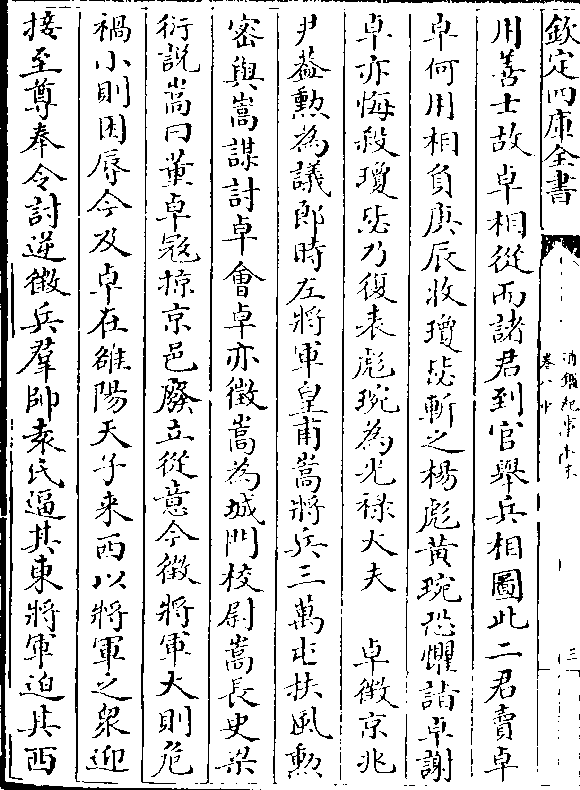 欽定四庫全書
通鑑紀事本末
卷八中
三
用善士故卓相從而諸君到官舉兵相圖此二君賣卓
卓何用相負庚辰收瓊毖斬之楊彪黃琬恐懼詣卓謝
卓亦悔殺瓊毖乃復表彪琬為光祿大夫　卓徵京兆
尹蓋勲為議郎時左將軍皇甫嵩將兵三萬屯扶風勲
密與嵩謀討卓會卓亦徵嵩為城門校尉嵩長史梁
衍說嵩曰董卓冦掠京邑廢立從意今徵將軍大則危
禍小則困辱今及卓在雒陽天子来西以將軍之衆迎
接至尊奉令討逆徵兵羣帥袁氏逼其東將軍迫其西